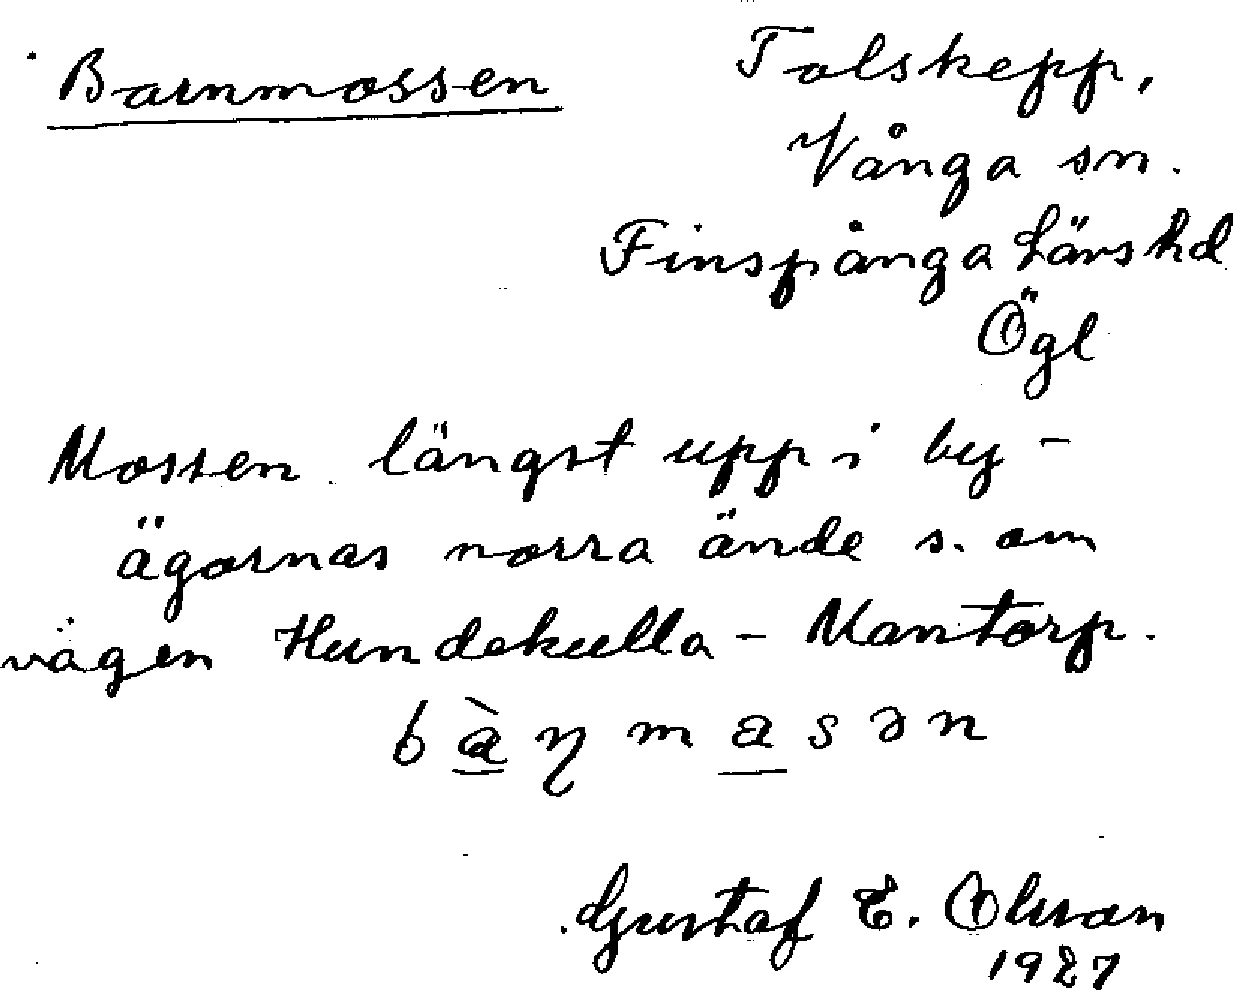 Barnmossen
Tolskepp,
Vånga sn.
Finspånga Länshd
Ögl
Mossen längst upp i by-
ägornas norra ände s. om
vägen Hundekulla - Mantorp.
Gustaf E. Olsson
1927